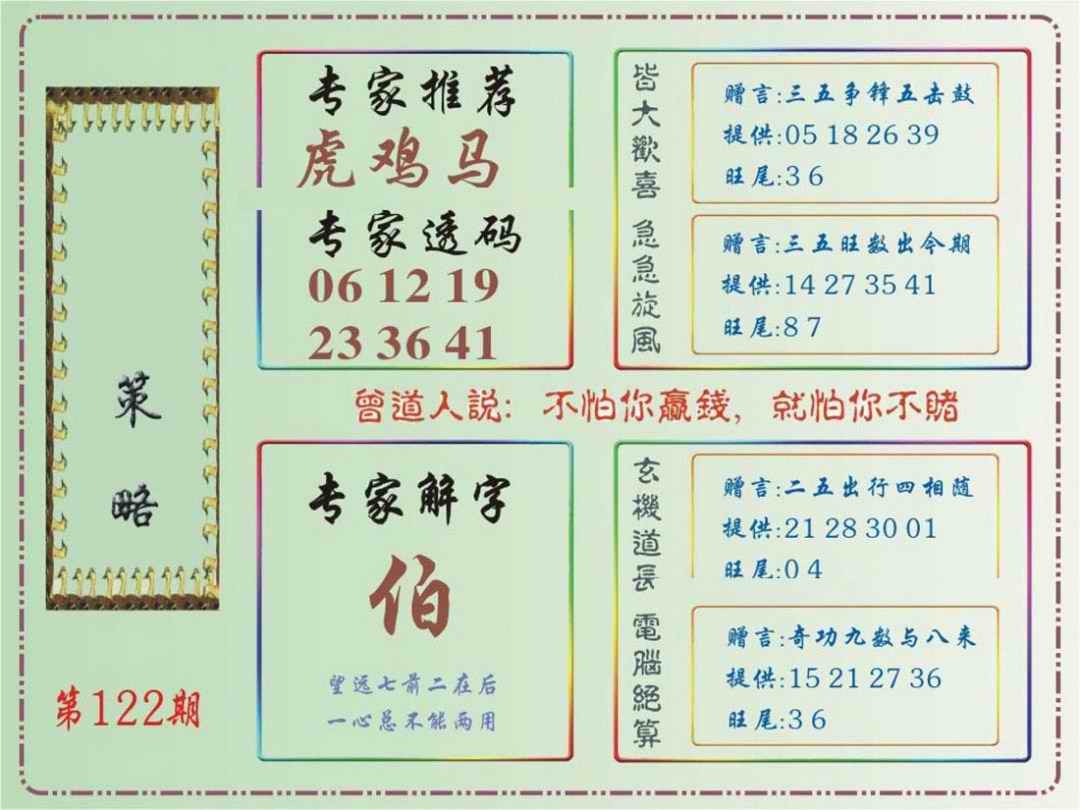 策略
第122期
专家推荐
虎鸡马
专家透码
06 12 19
23 36 41
皆大歡喜
赠言:三五争锋五击鼓
提供:05 18 26 39
旺尾:3 6
急急旋风
赠言:三五旺数出今期
提供:14 27 35 41
旺尾:8 7
曾道人説: 不怕你赢錢, 就怕你不賭
专家解字
伯
望远七前二在后
一心总不能两用
玄機道長
赠言:二五出行四相随
提供:21 28 30 01
旺尾:0 4
電腦絕算
赠言:奇功九数与八来
提供:15 21 27 36
旺尾:3 6